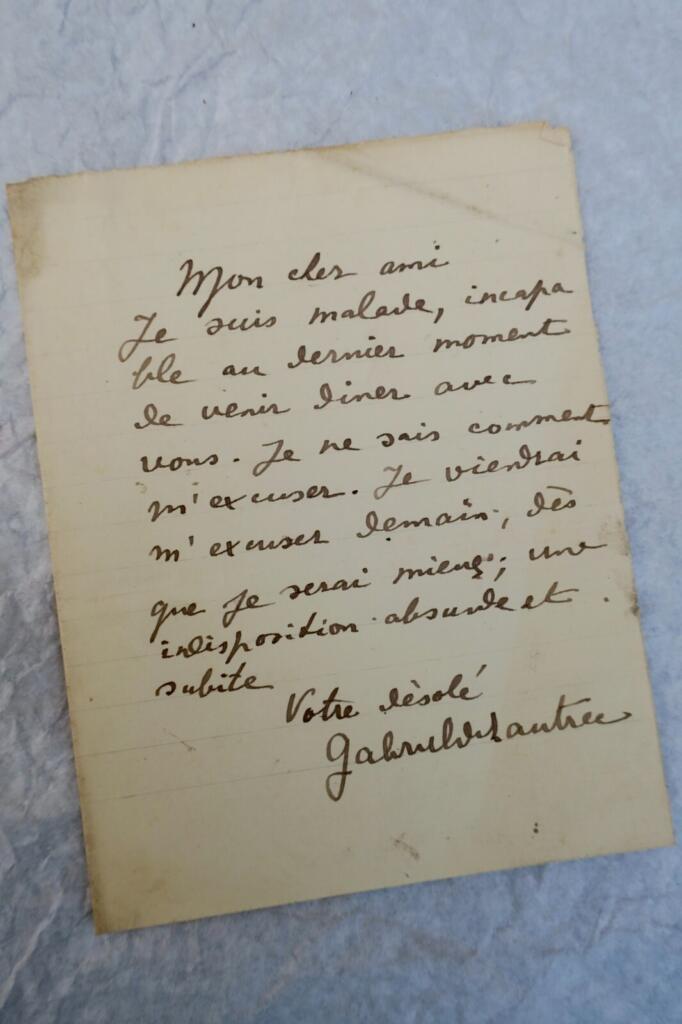 Mon cher ami
Je suis malade, incapa
ble au dernier moment
de venir diner avec
vous. Je ne sais comment
m'excuser. Je viendrai
m'excuser demain, dès
que je serai mieux; une
indisposition absurde et
subite
Votre désolé
Gabriel de Lautrec